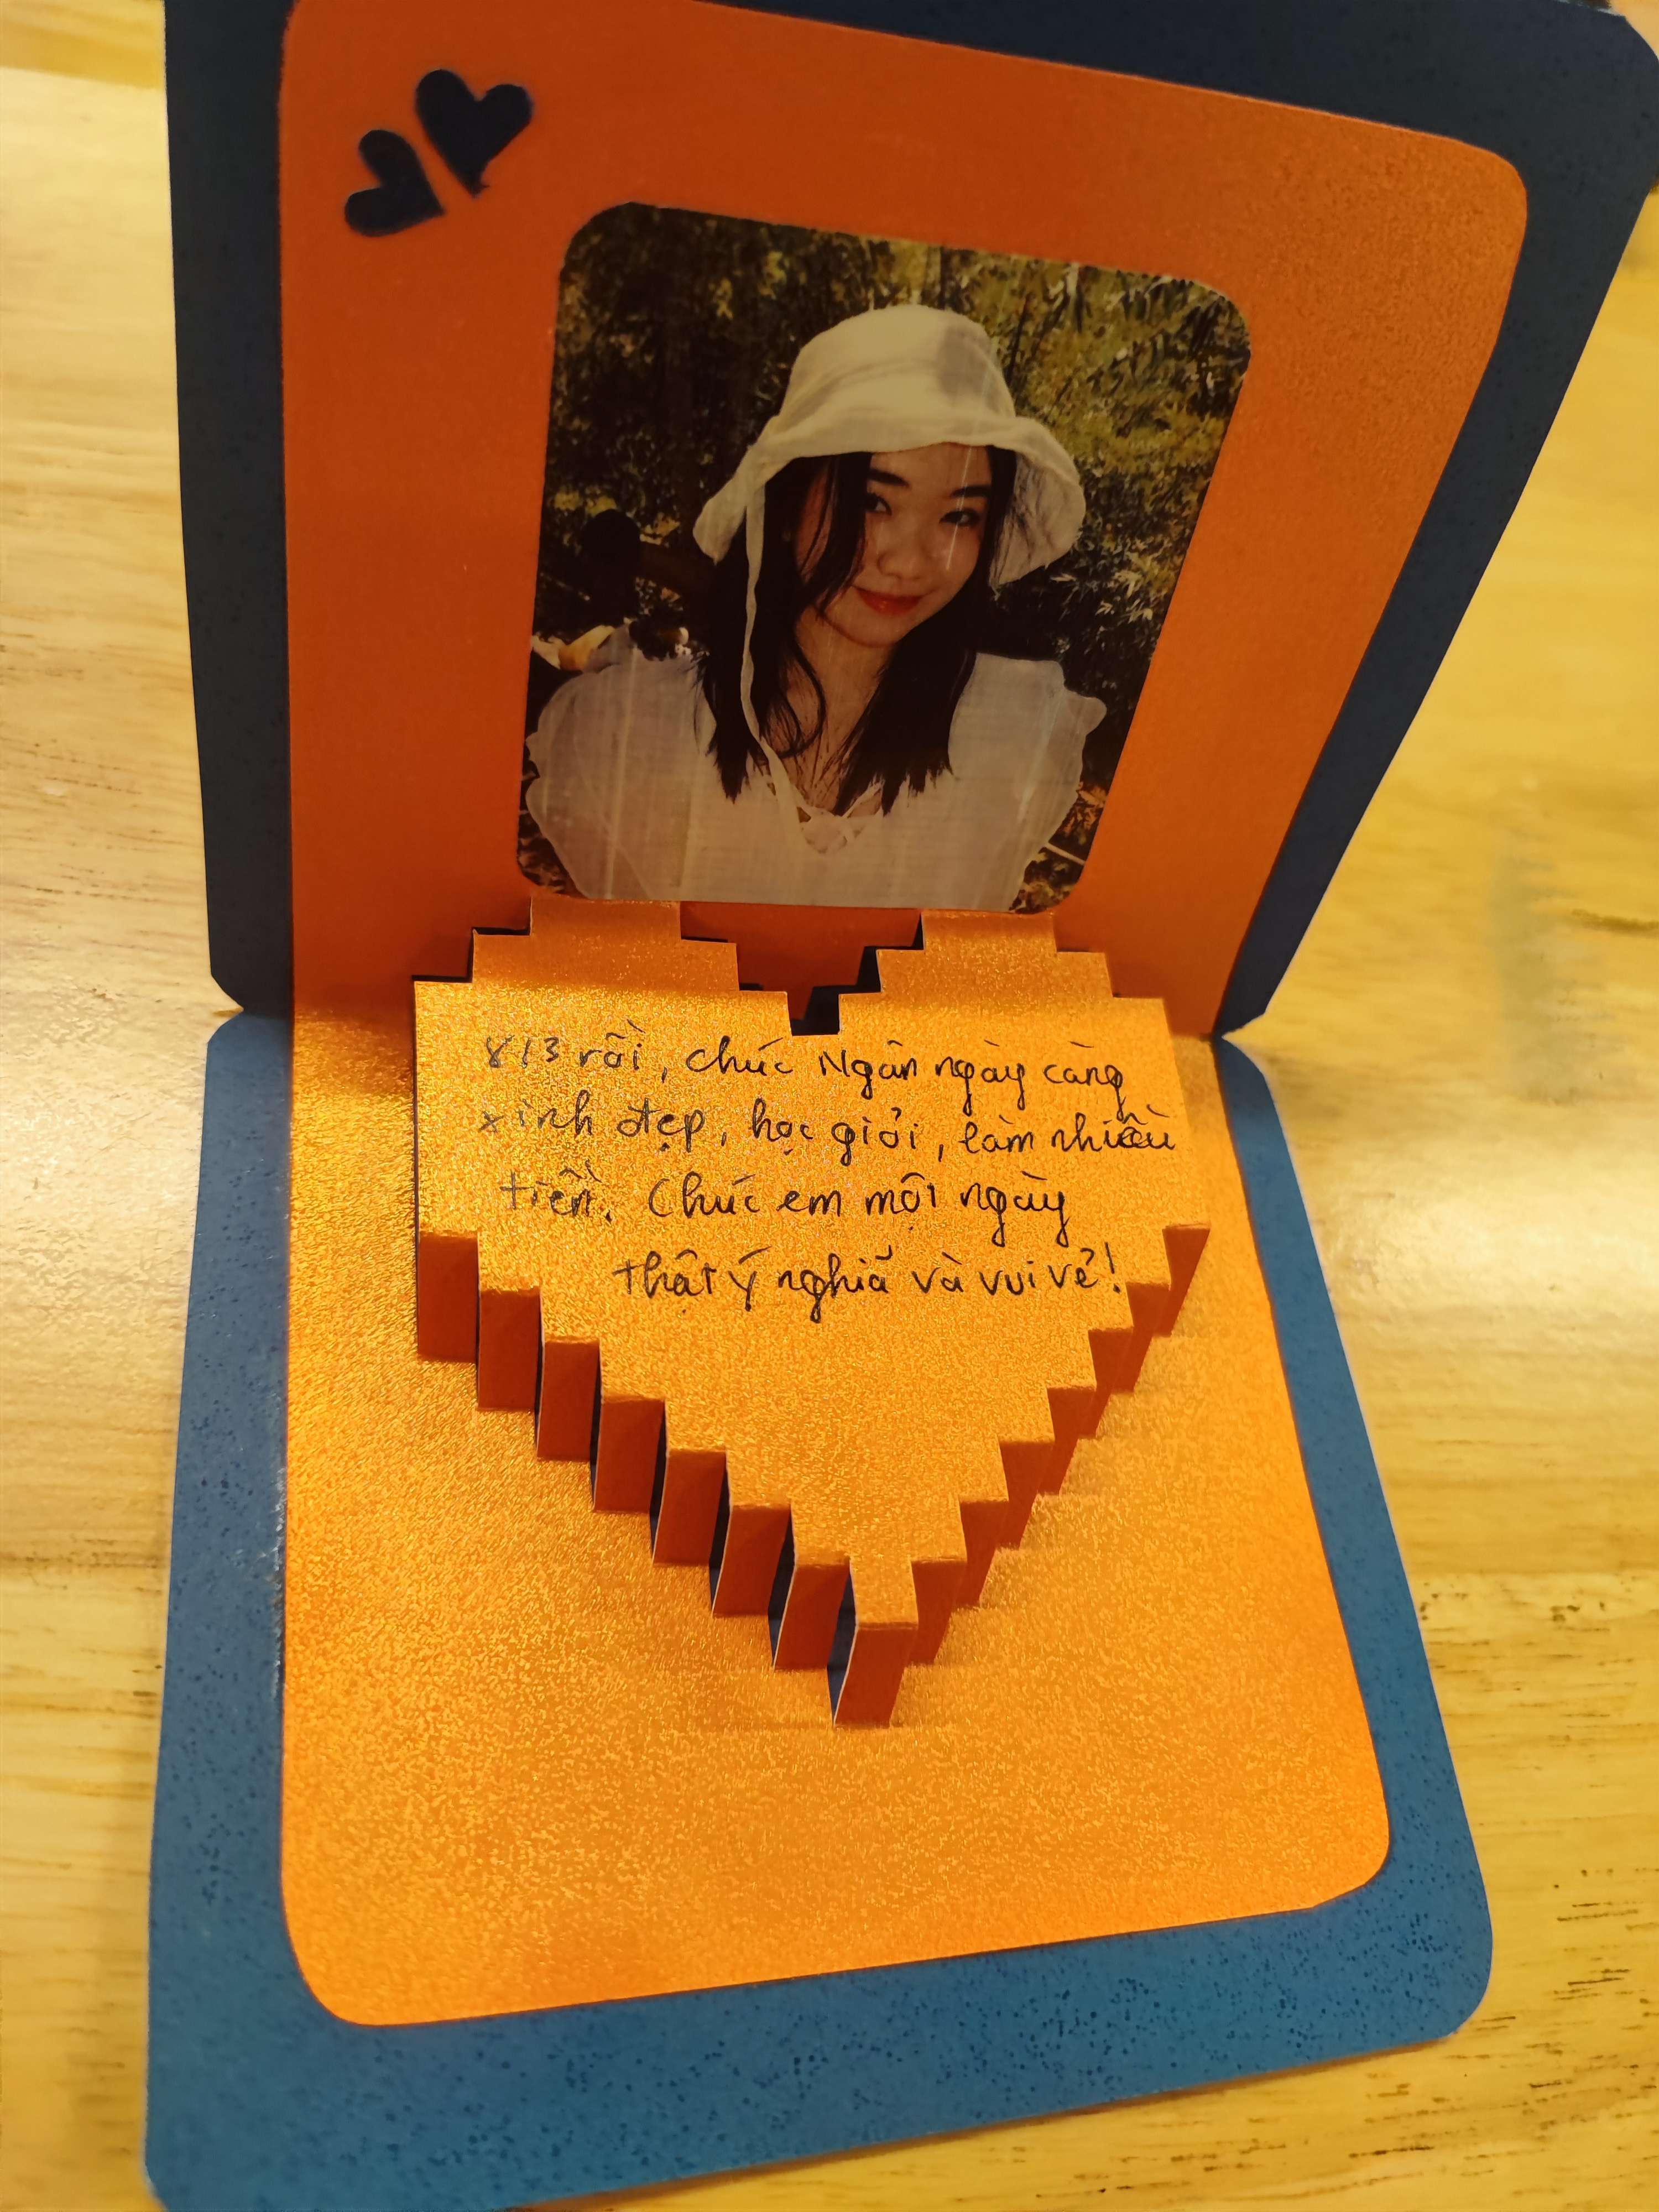 8/3 rồi, chúc Ngân ngày càng
xinh đẹp, học giỏi, làm nhiều
tiền. Chúc em một ngày
thật ý nghĩa và vui vẻ!